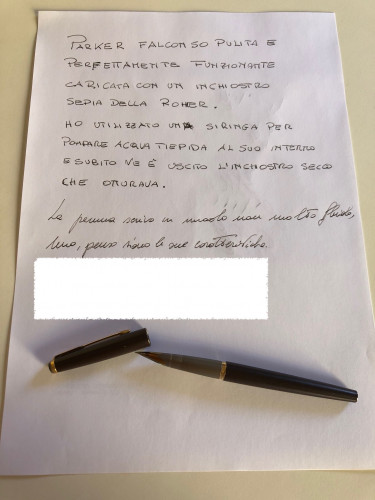 PARKER FALCON 50 PULITA E
PERFETTAMENTE FUNZIONANTE
CARICATA CON UN INCHIOSTRO
SEPIA DELLA ROHER.
HO UTILIZZATO UNA SIRINGA PER
POMPARE ACQUA TIEPIDA AL SUO INTERNO
E SUBITO NE È USCITO L'INCHIOSTRO SECCO
CHE OTTURAVA.
La penna scrive in modo non molto fluido,
ma, penso siano le sue caratteristiche.